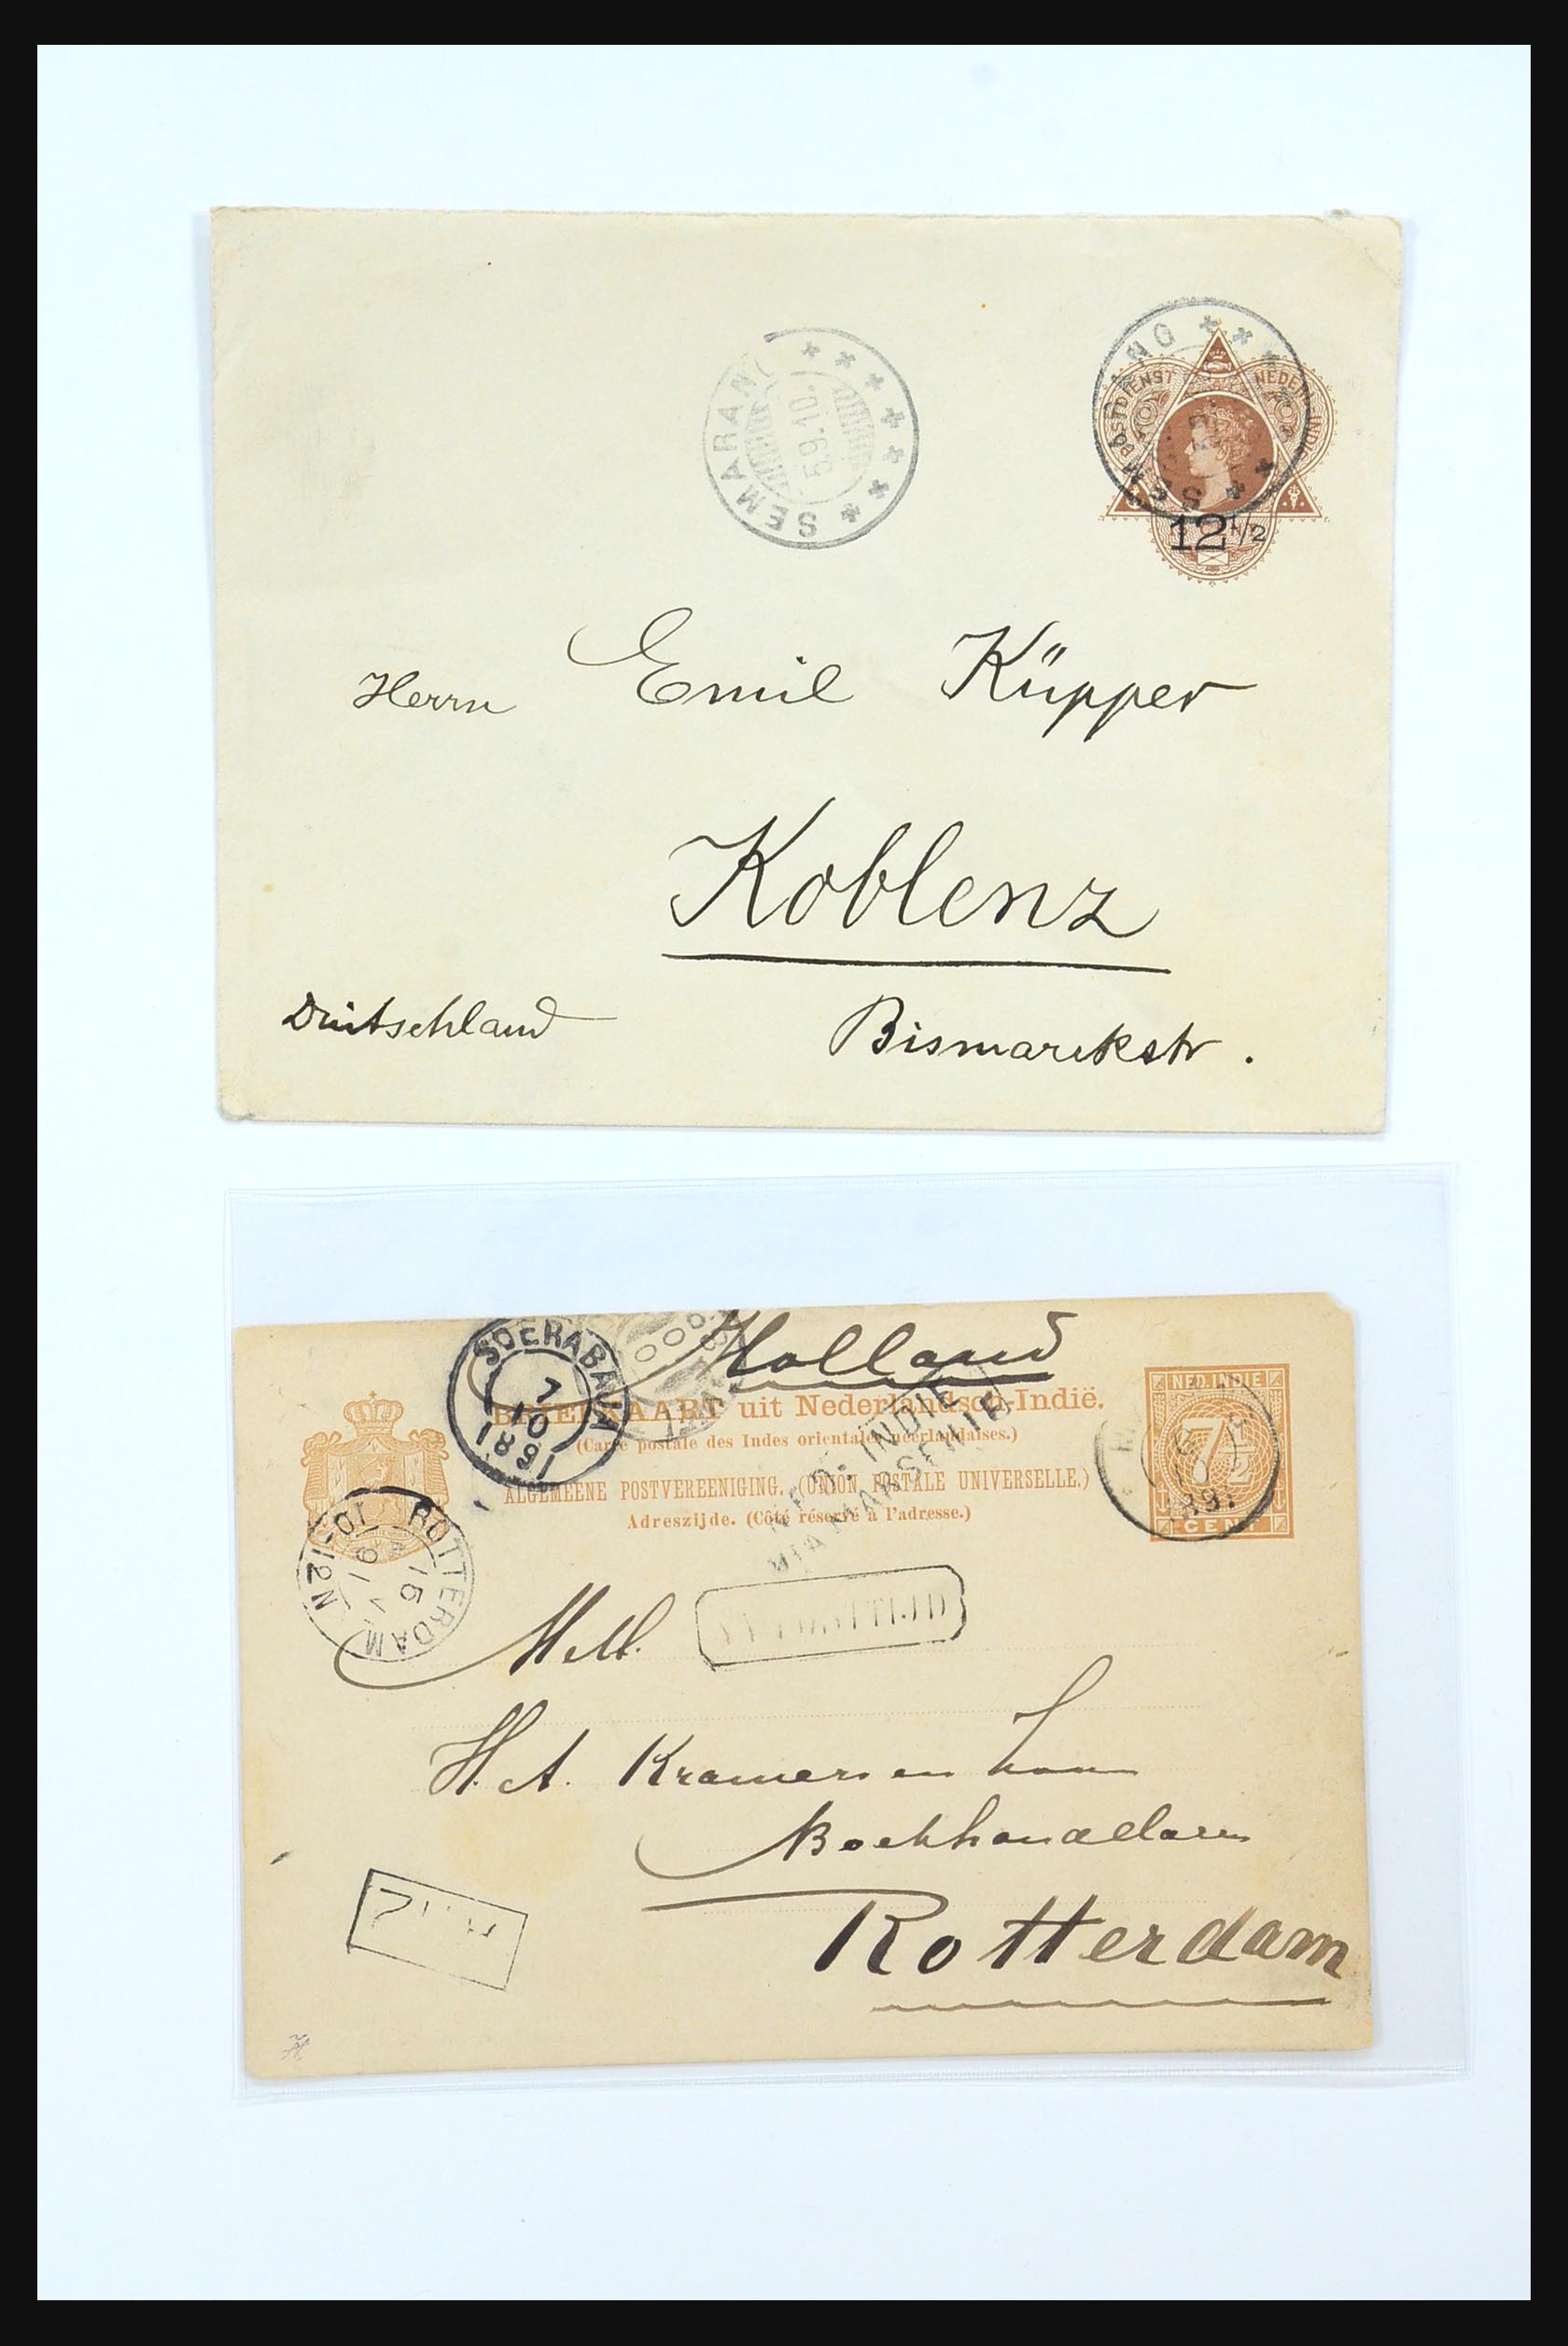 SEMARANG
5.9.10.
SEMARANG
POSTDIENST NEDERL. INDIË
12 1/2
Herrn Emil Küpper
Koblenz
Duitschland Bismarckstr.
Holland
SOERABAJA
7
10
1891
BRIEFKAART uit Nederlandsch-Indië.
(Carte postale des Indes orientales néerlandaises.)
ALGEMEENE POSTVEREENIGING. (UNION POSTALE UNIVERSELLE.)
Adreszijde. (Côté réservé à l'adresse.)
NED. INDIE
VIA MARSEILLE
NED. INDIE
7 1/2
CENT
ROTTERDAM
15
91
10-12N
NA POSTTIJD
H.A. Kramers en Zoon
Boekhandelaren
Rotterdam